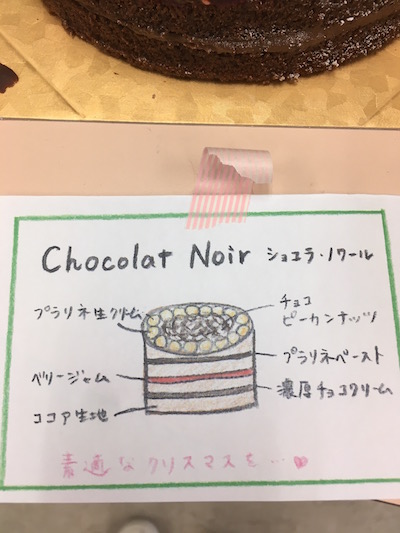 Chocolat Noir ショコラ・ノワール
プラリネ生クリーム
チョコ
ピーカンナッツ
プラリネペースト
ベリージャム
濃厚チョコクリーム
ココア生地
素適なクリスマスを…♥